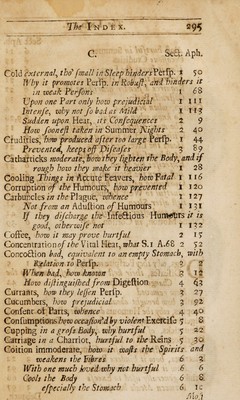 The INDEX. 295
C. Sect. Aph.
Cold external, tho' small in Sleep hinders Persp. 1 50
Why it promotes Persp. in Robust, and hinders it
in weak Persons 1 68
Upon one Part only how prejudicial 1 111
Intense, why not so bad at Mild 1 113
Sudden upon Heat, its Consequences 2 9
How soonest taken in Summer Nights 2 40
Crudities, how produced after too large Persp. 1 44
Prevented, keeps off Diseases 3 89
Catharticks moderate, how they lighten the Body, and if
rough how they make it heavier 1 28
Cooling Things in Acute Feavers, how Fatal 1 116
Corruption of the Humours, how prevented 1 120
Carbuncles in the Plague, whence 1 127
Not from an Adustion of Humours 1 131
If they discharge the Infectious Humours it is
good, otherwise not 1 132
Coffee, how it may prove hurtful 2 15
Concentration of the Vital Heat, what S.1 A.68 2 52
Concoction bad, equivalent to an empty Stomach, with
Relation to Persp. 3 2
When bad, how known 3 12
How distinguished from Digestion 4 63
Currants, how they lessen Persp. 3 27
Cucumbers, how prejudicial 3 92
Consent of Parts, whence 4 40
Consumptions how occasion'd by violent Exercise 5 8
Cupping in a gross Body, why hurtful 5 22
Carriage in a Charriot, hurtful to the Reins 5 30
Coition immoderate, how it wasts the Spirits and
weakens the Fibres 6 2
With one much loved why not hurtful 6 6
Cools the Body 6 8
especially the Stomach 6